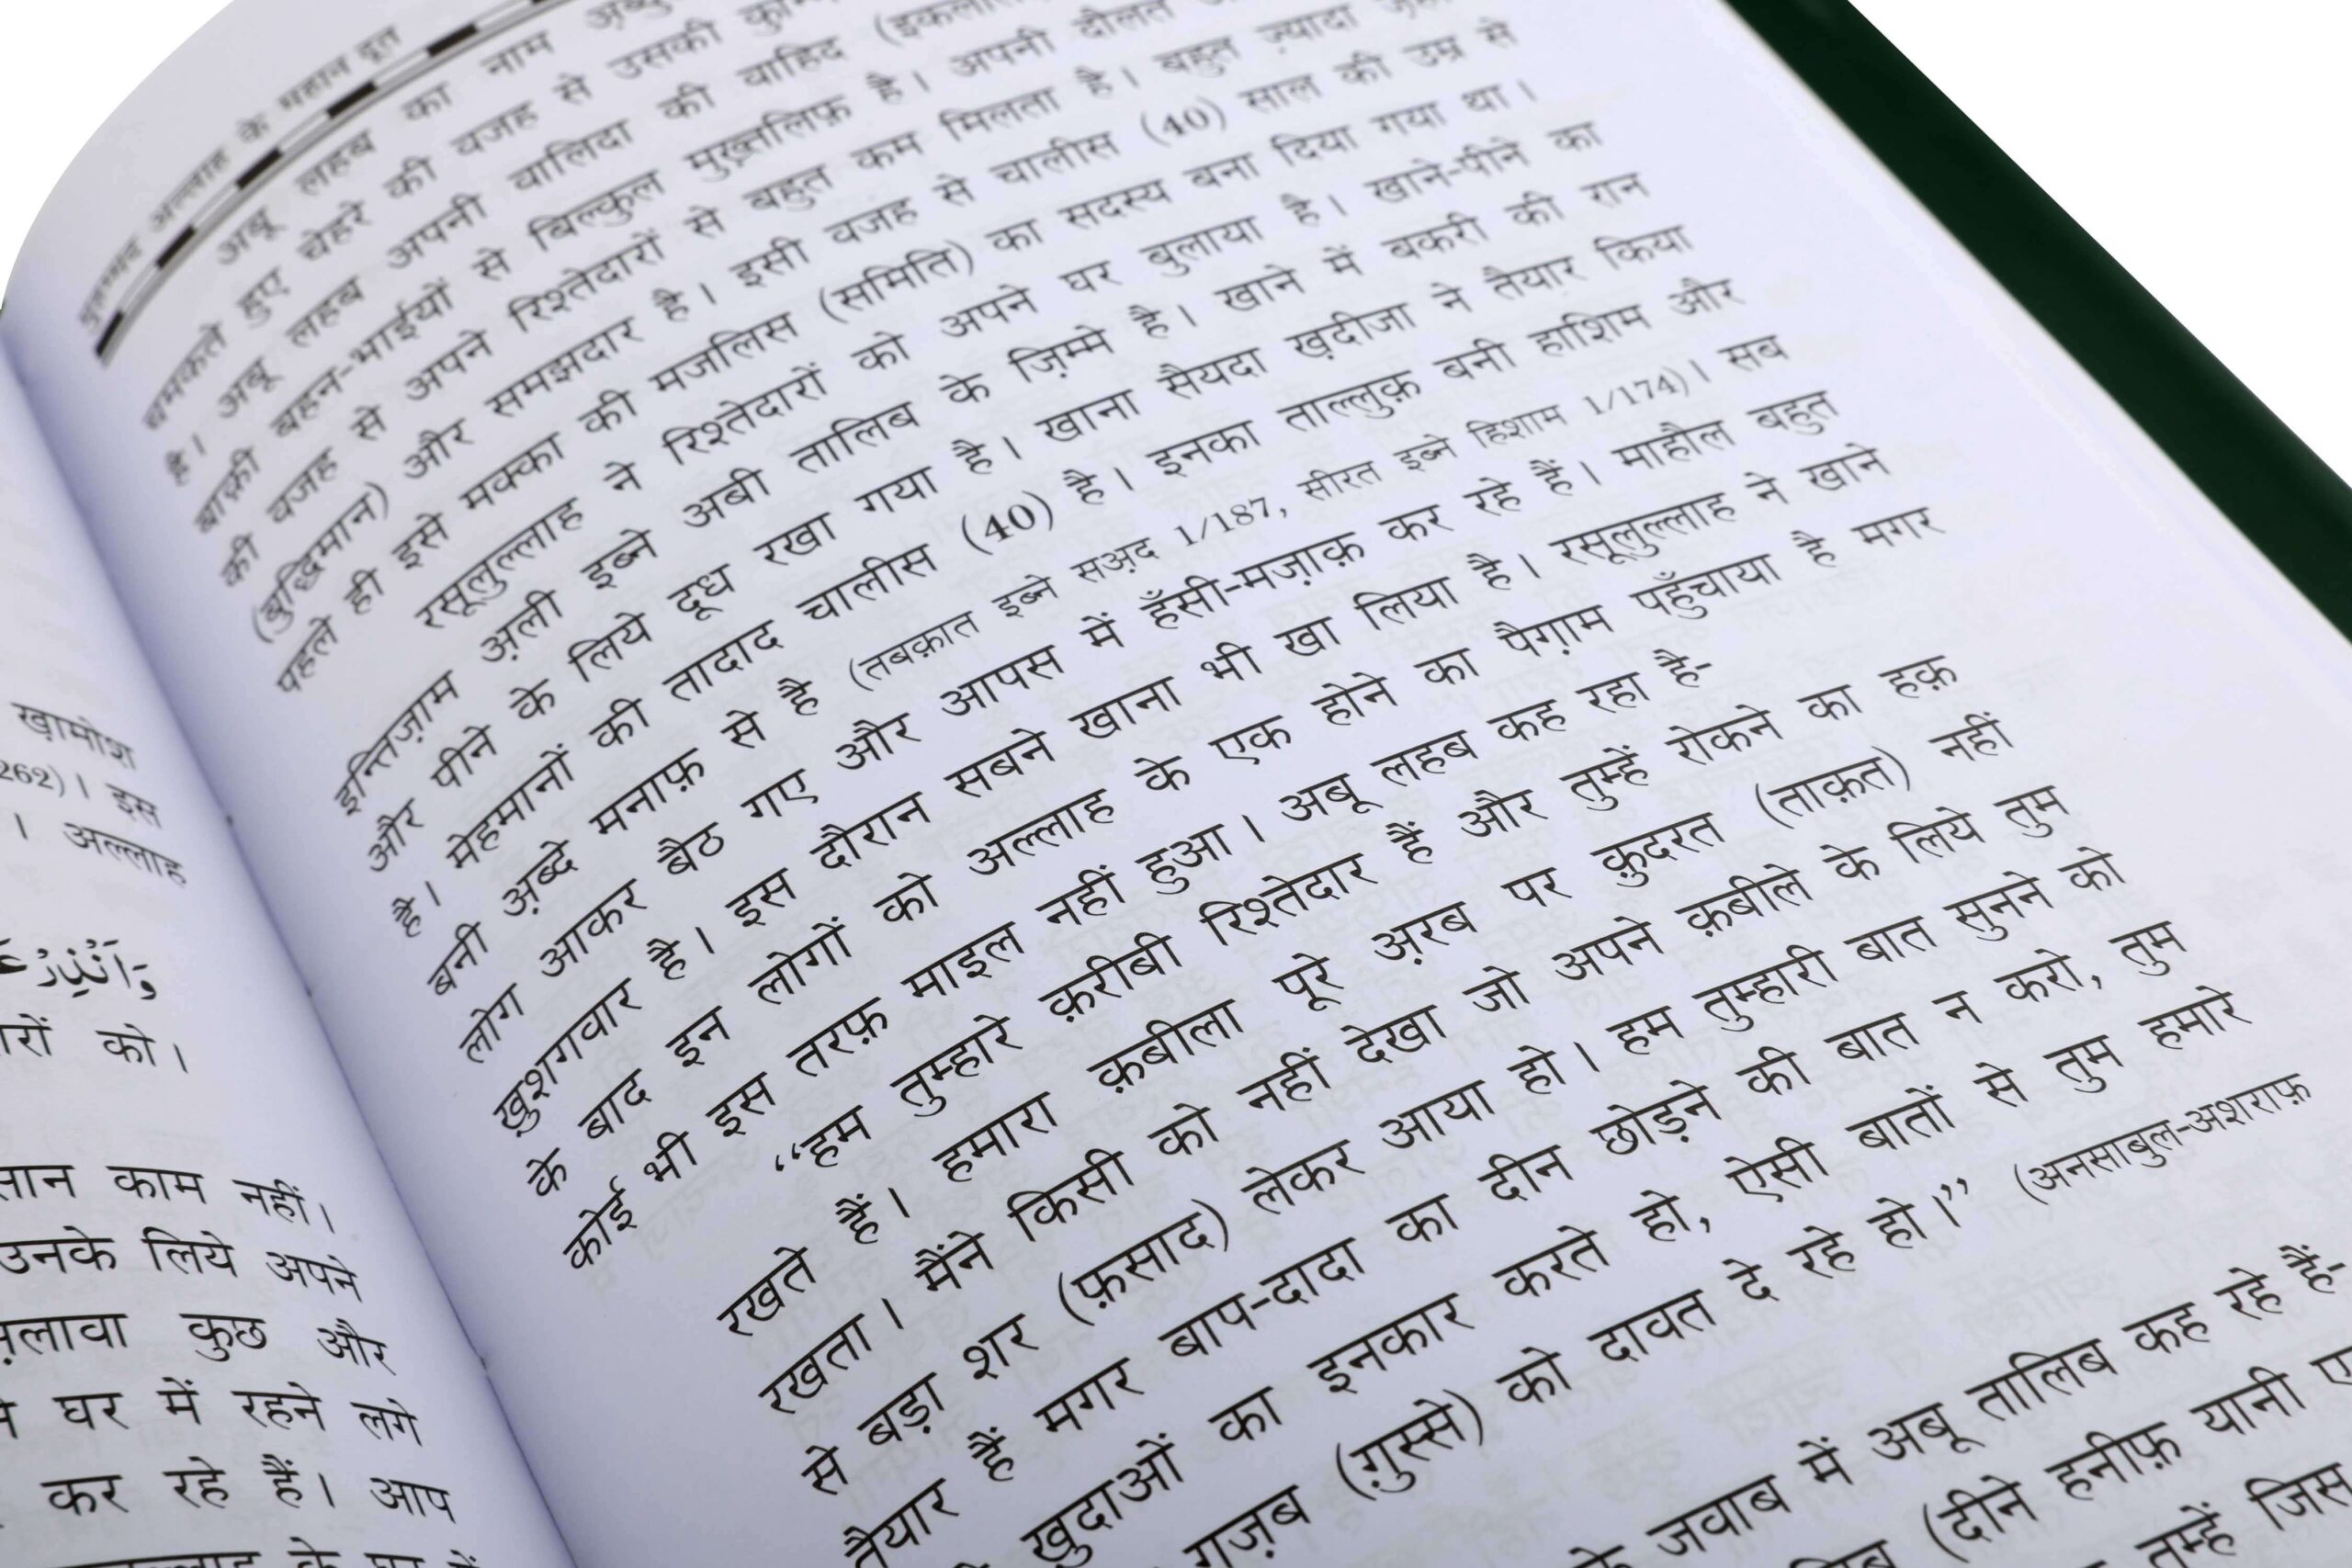 खामोश
262)। इस
। अल्लाह
وَاَنْذِرْ
को।
काम नहीं।
उनके लिये अपने
कुछ और
घर में रहने लगे
कर रहे हैं। आप
मुहम्मद अल्लाह के महान दूत
अबू लहब का नाम
चमकते हुए चेहरे की वजह से उसकी
है। अबू लहब अपनी वालिदा की वाहिद
बाक़ी बहन-भाईयों से बिल्कुल मुख़्तलिफ़ है। अपनी दौलत
की वजह से अपने रिश्तेदारों से बहुत कम मिलता है। बहुत ज़्यादा
(बुद्धिमान) और समझदार है। इसी वजह से चालीस (40) साल की उम्र से
पहले ही इसे मक्का की मजलिस (समिति) का सदस्य बना दिया गया था।
रसूलुल्लाह ने रिश्तेदारों को अपने घर बुलाया है। खाने-पीने का
इन्तिज़ाम अ़ली इब्ने अबी तालिब के ज़िम्मे है। खाने में बकरी की रान
और पीने के लिये दूध रखा गया है। खाना सैयदा ख़दीजा ने तैयार किया
है। मेहमानों की तादाद चालीस (40) है। इनका ताल्लुक़ बनी हाशिम और
बनी अ़ब्दे मनाफ़ से है (तबक़ात इब्ने सअ़द 1/187, सीरत इब्ने हिशाम 1/174)। सब
लोग आकर बैठ गए और आपस में हँसी-मज़ाक़ कर रहे हैं। माहौल बहुत
ख़ुशगवार है। इस दौरान सबने खाना भी खा लिया है। रसूलुल्लाह ने खाने
के बाद इन लोगों को अल्लाह के एक होने का पैग़ाम पहुँचाया है मगर
कोई भी इस तरफ़ माइल नहीं हुआ। अबू लहब कह रहा है-
“हम तुम्हारे क़रीबी रिश्तेदार हैं और तुम्हें रोकने का हक़
रखते हैं। हमारा क़बीला पूरे अ़रब पर क़ुदरत (ताक़त) नहीं
रखता। मैंने किसी को नहीं देखा जो अपने क़बीले के लिये तुम
से बड़ा शर (फ़साद) लेकर आया हो। हम तुम्हारी बात सुनने को
तैयार हैं मगर बाप-दादा का दीन छोड़ने की बात न करो, तुम
ख़ुदाओं का इनकार करते हो, ऐसी बातों से तुम हमारे
गज़ब (ग़ुस्से) को दावत दे रहे हो।” (अनसाबुल-अशराफ़
के जवाब में अबू तालिब कह रहे हैं-
(दीने हनीफ़ यानी
तुम्हें जिस